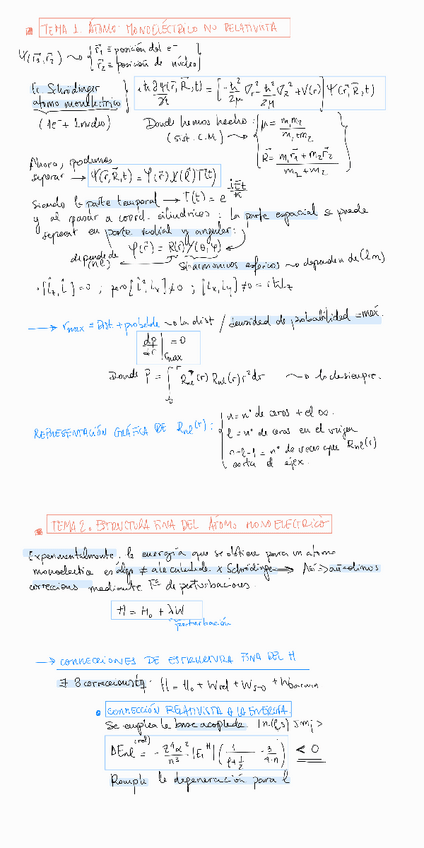 TEMA 1. ÁTOMO MONOELÉCTRICO NO RELATIVISTA
Ψ(r₁, r₂) ~> { r₁ = posición del e⁻
r₂ = posición de núcleo }
Ec Schrödinger
átomo monoeléctrico
(1e⁻ + 1 núcleo)
iħ ∂Ψ(r,R,t)/∂t = [-ħ²/2μ ∇r² - ħ²/2M ∇R² + V(r)] Ψ(r,R,t)
Donde hemos hecho
(sist. C.M) ~>
μ = m₁m₂/m₁+m₂
R = m₁r₁ + m₂r₂/m₁+m₂
Ahora, podemos
separar → Ψ(r,R,t) = φ(r)χ(R)T(t)
Siendo la parte temporal → T(t) = e
y al pasar a coord. cilíndricas: la parte espacial se puede
separar en parte radial y angular:
φ(r) = R(r) Y(θ,φ)
depende de
(nl)
Si armónicos esféricos ~> dependen de (l m)
≠0 ; [Lx, Ly] ≠0 = iħLz
---> rmax = Dist + probable ~> la dist / densidad de probabilidad = max.
dρ/dr | = 0
rmax
Donde P = ∫ Rnl*(r) Rnl(r) r² dr ~> lo de siempre.
REPRESENTACIÓN GRÁFICA DE Rnl(r):
n = nº de ceros + el ∞.
l = nº de ceros en el origen
n-l-1 = nº de veces que Rnl(r)
corta el eje x.
TEMA 2. ESTRUCTURA FINA DEL ÁTOMO MONOELECTRICO
Experimentalmente, la energía que se obtiene para un átomo
monoelectrico es algo ≠ a la calculada x Schrödinger → Así => añadimos
correcciones mediante Tª de perturbaciones.
H = H₀ + λW
perturbación
→ CORRECCIONES DE ESTRUCTURA FINA DEL H
H = H₀ + Wrel + Ws-o + WDarwin
• CORRECCIÓN RELATIVISTA A LA ENERGÍA.
Se emplea la base acoplada |n l s j mj>
ΔEnl (rel) = - Z⁴α²/n³ · |E₁ᴴ| ( 1/l+½ - 3/4·n ) < 0
Rompe la degeneración para l